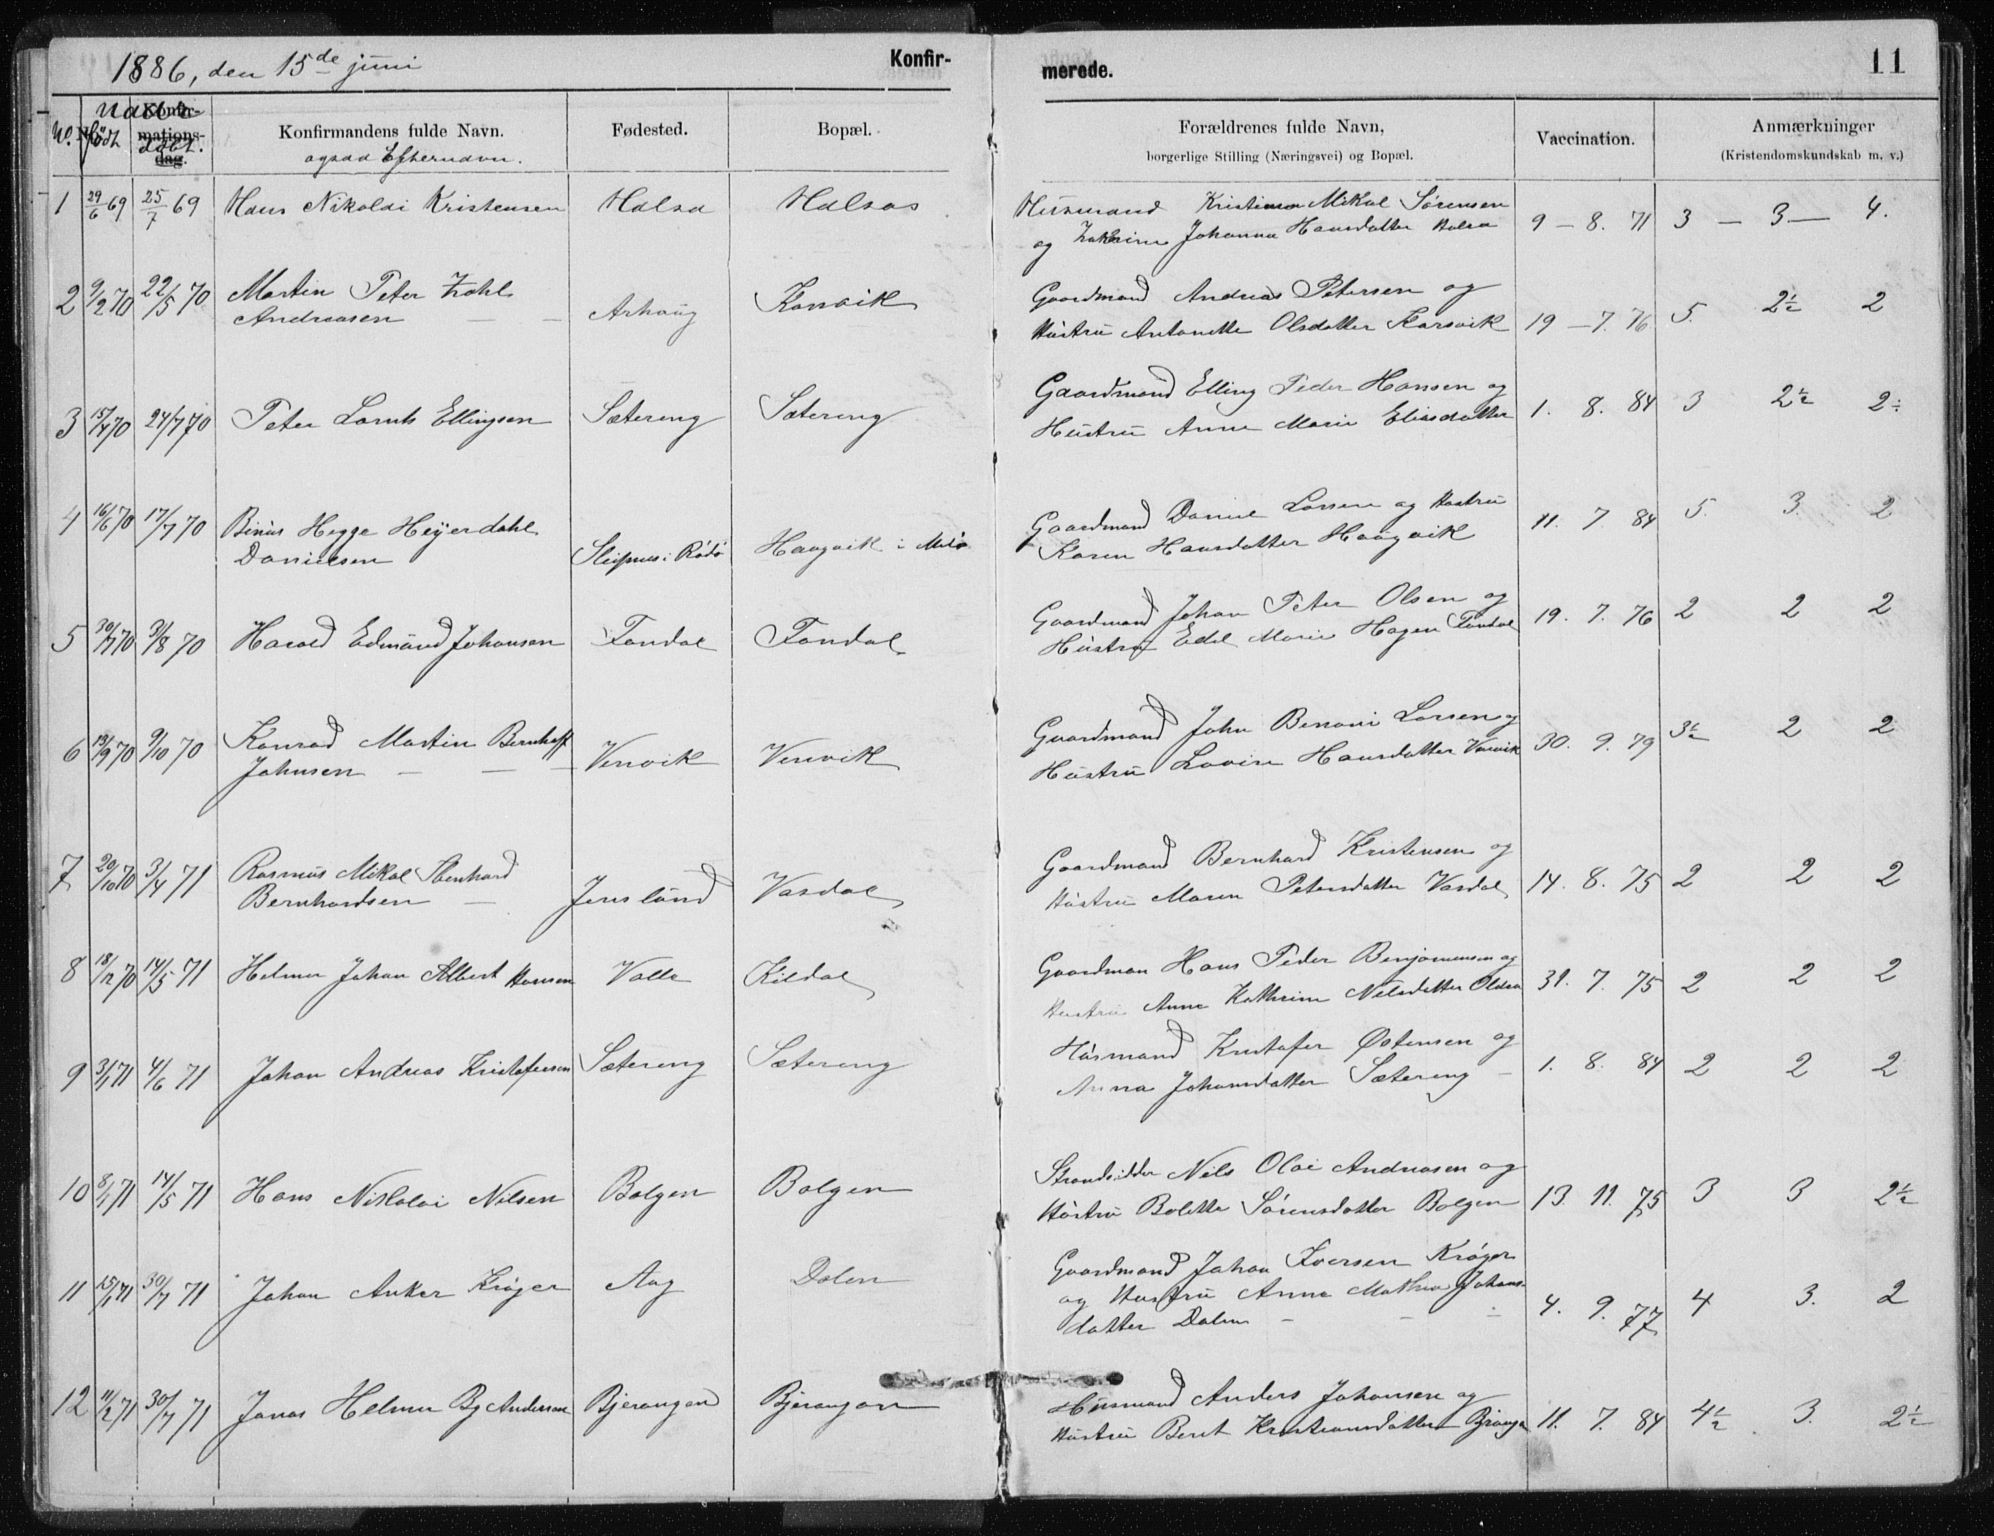 1886, den 15de juni
Konfir-
merede.
11
No.
født
Konfir-
mations-
dag.
døbt.
Konfirmandens fulde Navn.
ogsaa Efternavn.
Fødested.
Bopæl.
Forældrenes fulde Navn,
borgerlige Stilling (Næringsvei) og Bopæl.
Vaccination.
Anmærkninger
(Kristendomskundskab m. v.)
1 29/6 69 25/7 69 Hans Nikolai Kristensen Halsa Halsos
Husmand Mikal Sørensen
og Johanna Hansdatter Halsa 9 - 8. 71 3 - 3 - 4.
2 9/2 70 22/5 70 Martin Peter Zahl
Andreasen Arhaug
Gaardmand Andreas Petersen og
Hustru Antonette Olsdatter 19 - 7. 76 5. 2½ 2
3 15/4 70 24/7 70 Peter Lornts Ellingsen Sætereng Sætereng
Gaardmand Elling Peder Hansen og
Hustru Anne Marie Eliasdatter 1. 8. 84 3 2½ 2÷
4 16/6 70 17/7 70 Hegge Heyerdahl
Danielsen Sleipnes i Rødø Haugvik i Melø
Gaardmand Daniel Larsen og Hustru
Karen Hansdatter Haugvik 11. 7 84 5. 3. 2
5 30/7 70 3/8 70 Harald Edmund Johansen Fondal Fondal
Gaardmand Johan Peter Olsen og
Hustru Edel Marie Hagen Fondal 19. 7. 76 2 2 2
6 13/9 70 9/10 70 Konrad Martin Bernhoft
Johnsen Venvik Venvik
Gaardmand John Benoni Larsen og
Hustru Lovise Hansdatter Venvik 30. 9. 79 3½ 2 2
7 20/10 70 3/4 71 Rasmus Mikal Ibenhard
Bernhardsen Jenslund Vasdal
Gaardmand Bernhard Kristensen og
Hustru Maren Petersdatter Vasdal 14. 8. 75 2 2 2
8 18/12 70 14/5 71 Helmer Johan Albert Hansen Valla Kildal
Gaardman Hans Peder Benjaminsen og
Hustru Anne Kathrine Nelsdatter 31. 7. 75 2 2 2
9 3/1 71 4/6 71 Johan Andreas Kristofersen Sætereng Sætereng
Husmand Kristofer Østensen og
Anna Johansdatter Sætereng 1. 8. 84 2 2 2
10 8/1 71 14/5 71 Hans Nikolai Nilsen Bolgen Bolgen
Strandsidder Nils Olai Andreasen og
Hustru Bolette Sørensdatter Bolgen 13. 11. 75 3 3 2½
11 15/1 71 30/7 71 Johan Anker Krøjer Aag Dalen
Gaardmand Johan Iversen Krøyer
og Hustru Anne Johans-
datter Dalen 4. 9. 77 4 3. 2
12 11/2 71 30/7 71 Jonas Helmer By Andersen Bjerangen Bjerangen
Husmand Anders Johansen og
Hustru Beret Kristiansdatter 11. 7. 84 4½ 3. 2½